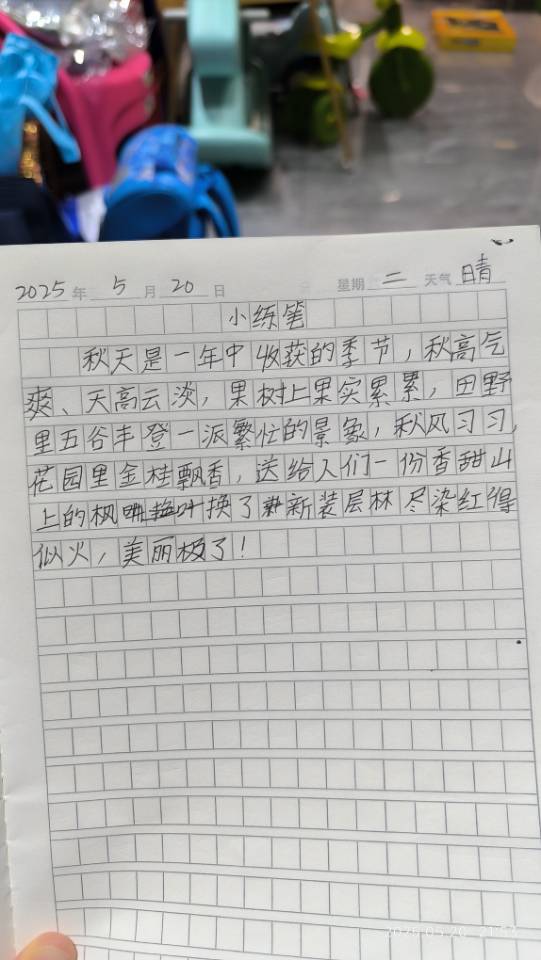 2025年5月20日 星期二 天气晴
小练笔
秋天是一年中收获的季节，秋高气
爽、天高云淡，果树上果实累累，田野
里五谷丰登一派繁忙的景象，秋风习习，
花园里金桂飘香，送给人们一份香甜山
上的枫叶换了新装层林尽染红得
似火，美丽极了！